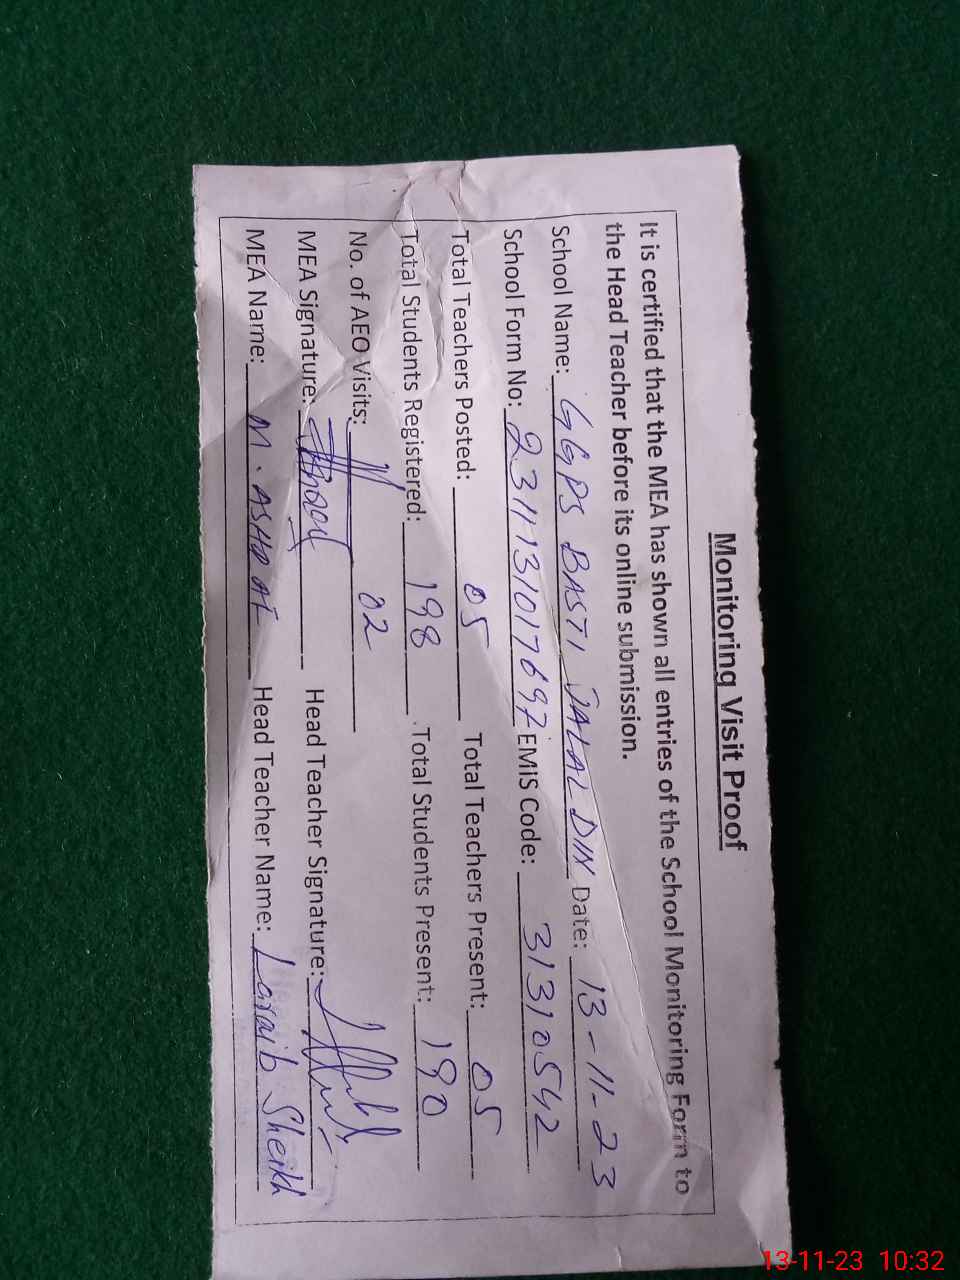 Monitoring Visit Proof
It is certified that the MEA has shown all entries of the School Monitoring Form to
the Head Teacher before its online submission.
School Name: GGPS BASTI JALAL DIN Date: 13-11-23
School Form No: 2311131017697 EMIS Code: 31310542
Total Teachers Posted: 05 Total Teachers Present: 05
Total Students Registered: 198 Total Students Present: 190
No. of AEO Visits: 02
MEA Signature: Head Teacher Signature:
MEA Name: M. ASHRAF Head Teacher Name: Laraib Sheikh
13-11-23 10:32